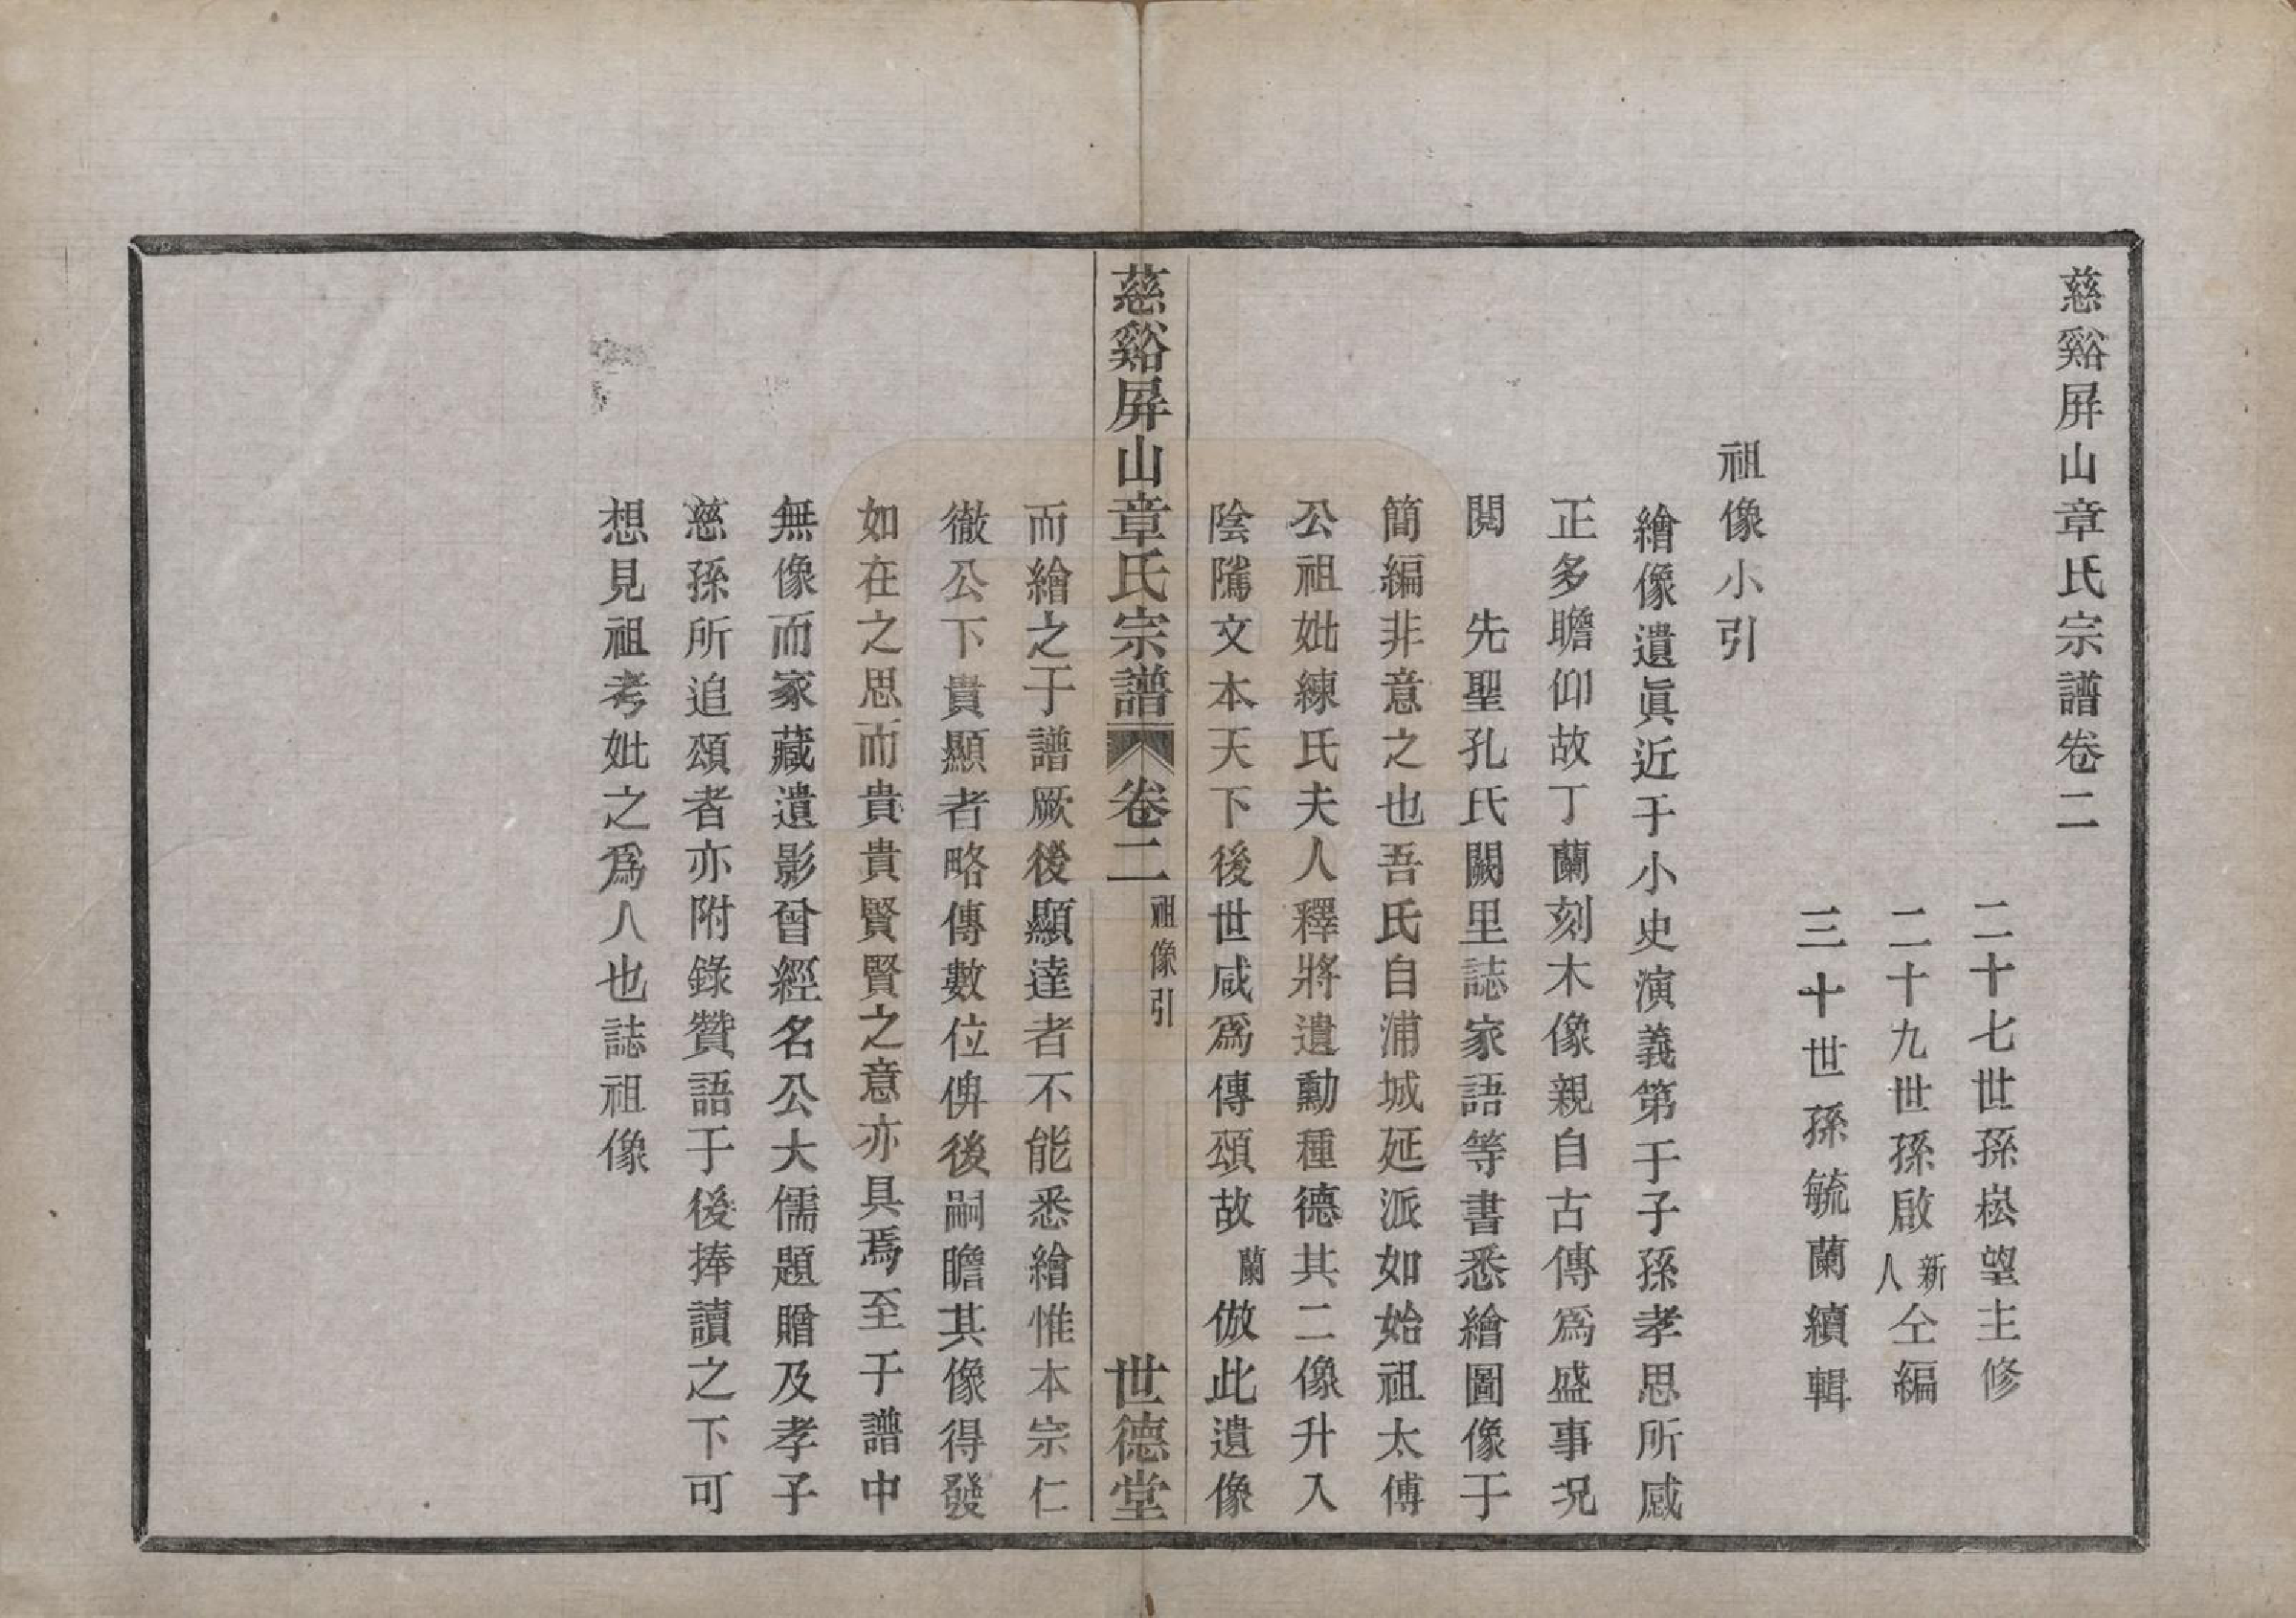 慈谿屏山章氏宗譜卷二
二十七世孫崧望主修
二十九世孫啟新人仝編
三十世孫毓蘭續輯
祖像小引
繪像遺眞近于小史演義第于子孫孝思所感
正多瞻仰故丁蘭刻木像親自古傳爲盛事况
閱　先聖孔氏闕里誌家語等書悉繪圖像于
簡編非意之也吾氏自浦城延派如始祖太傅
公祖妣練氏夫人釋將遺勳種德其二像升入
陰隲文本天下後世咸爲傳頌故蘭倣此遺像
慈谿屏山章氏宗譜　卷二　祖像引　世德堂
而繪之于譜厥後顯達者不能悉繪惟本宗仁
徹公下貴顯者略傳數位俾後嗣瞻其像得發
如在之思而貴貴賢賢之意亦具焉至于譜中
無像而家藏遺影曾經名公大儒題贈及孝子
慈孫所追頌者亦附錄贊語于後捧讀之下可
想見祖考妣之爲人也誌祖像